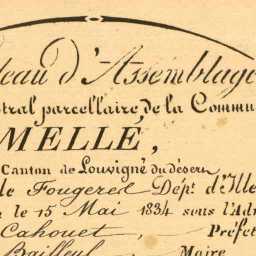 leau d'Assemblage
stral parcellaire de la Commu
MELLÉ,
Canton de Louvigné du désert
de Fougères Dépt d'Ille
n le 15 Mai 1834 sous l'Ad
Cahouet, Préfet
Bailleul, Maire